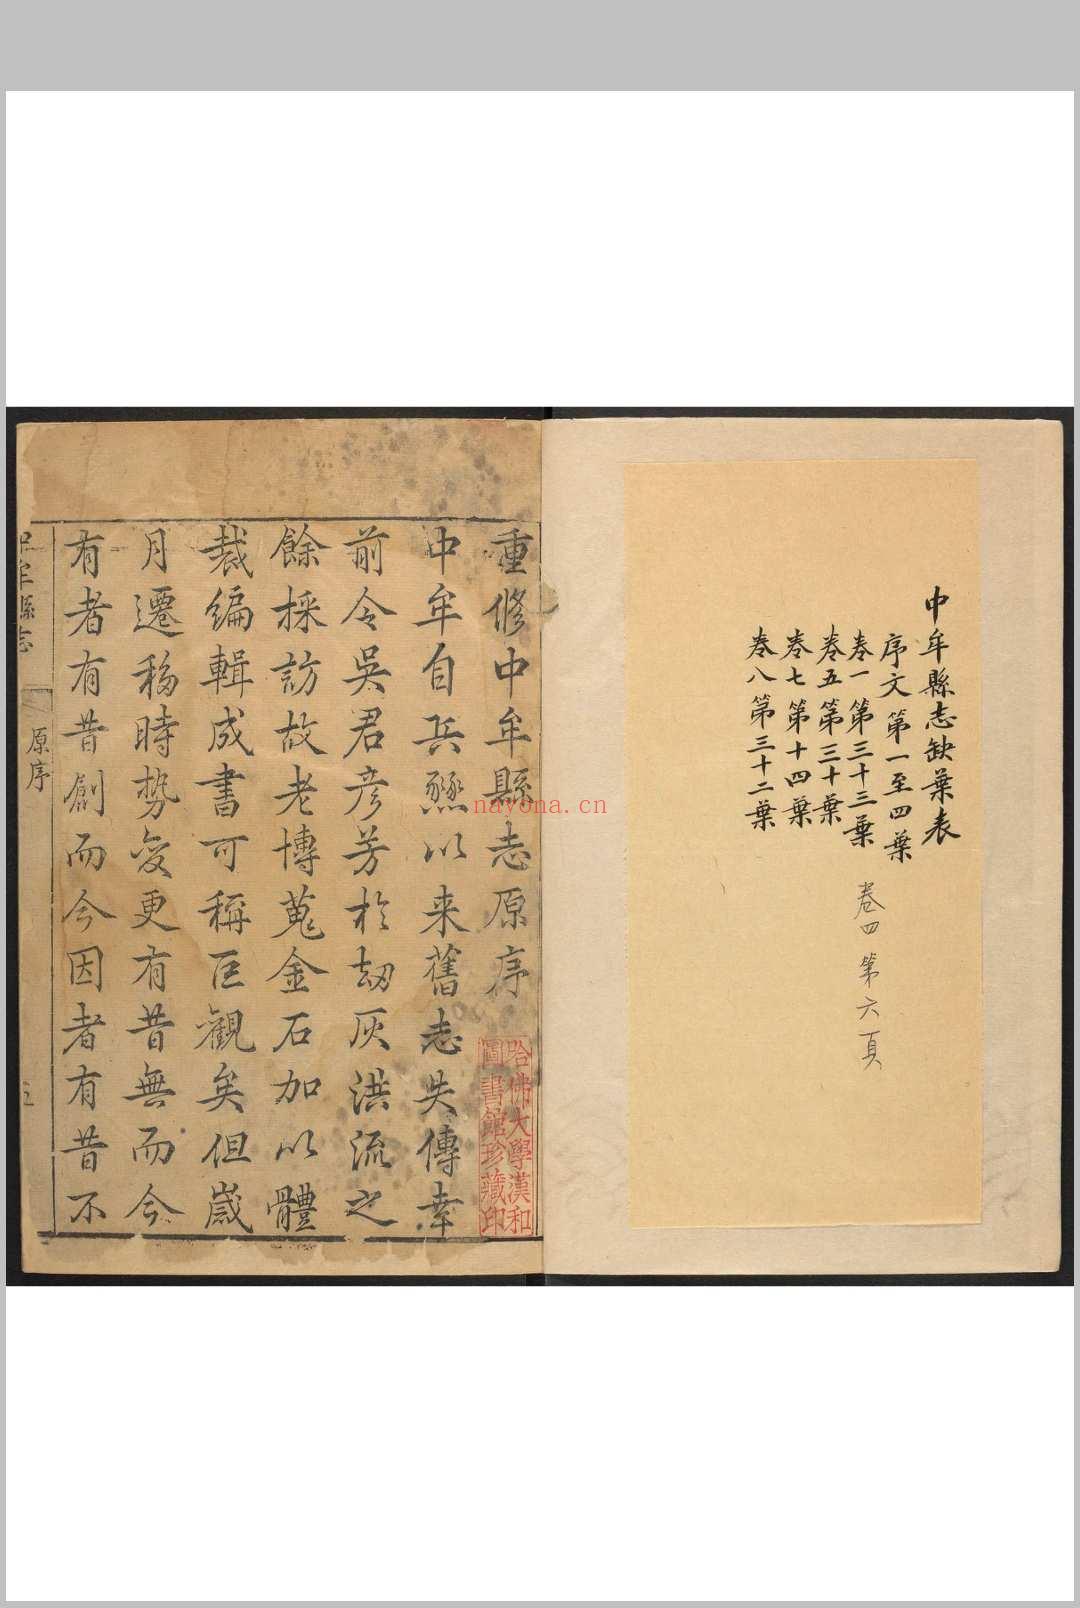 中牟縣志缺葉表
序文第一至四葉
卷一第三十三葉
卷五第三十葉
卷七第十四葉
卷八第三十二葉
卷四第六頁
重修中牟縣志原序
哈佛大學漢和
圖書館珍藏印
中牟自兵燹以来舊志失傳幸
前令吳君彦芳於刼灰洪流之
餘採訪故老博蒐金石加以體
裁編輯成書可稱巨觀矣但歲
月遷移時勢变更有昔無而今
有者有昔創而今因者有昔不
中牟縣志
原序
五
nayona.cn